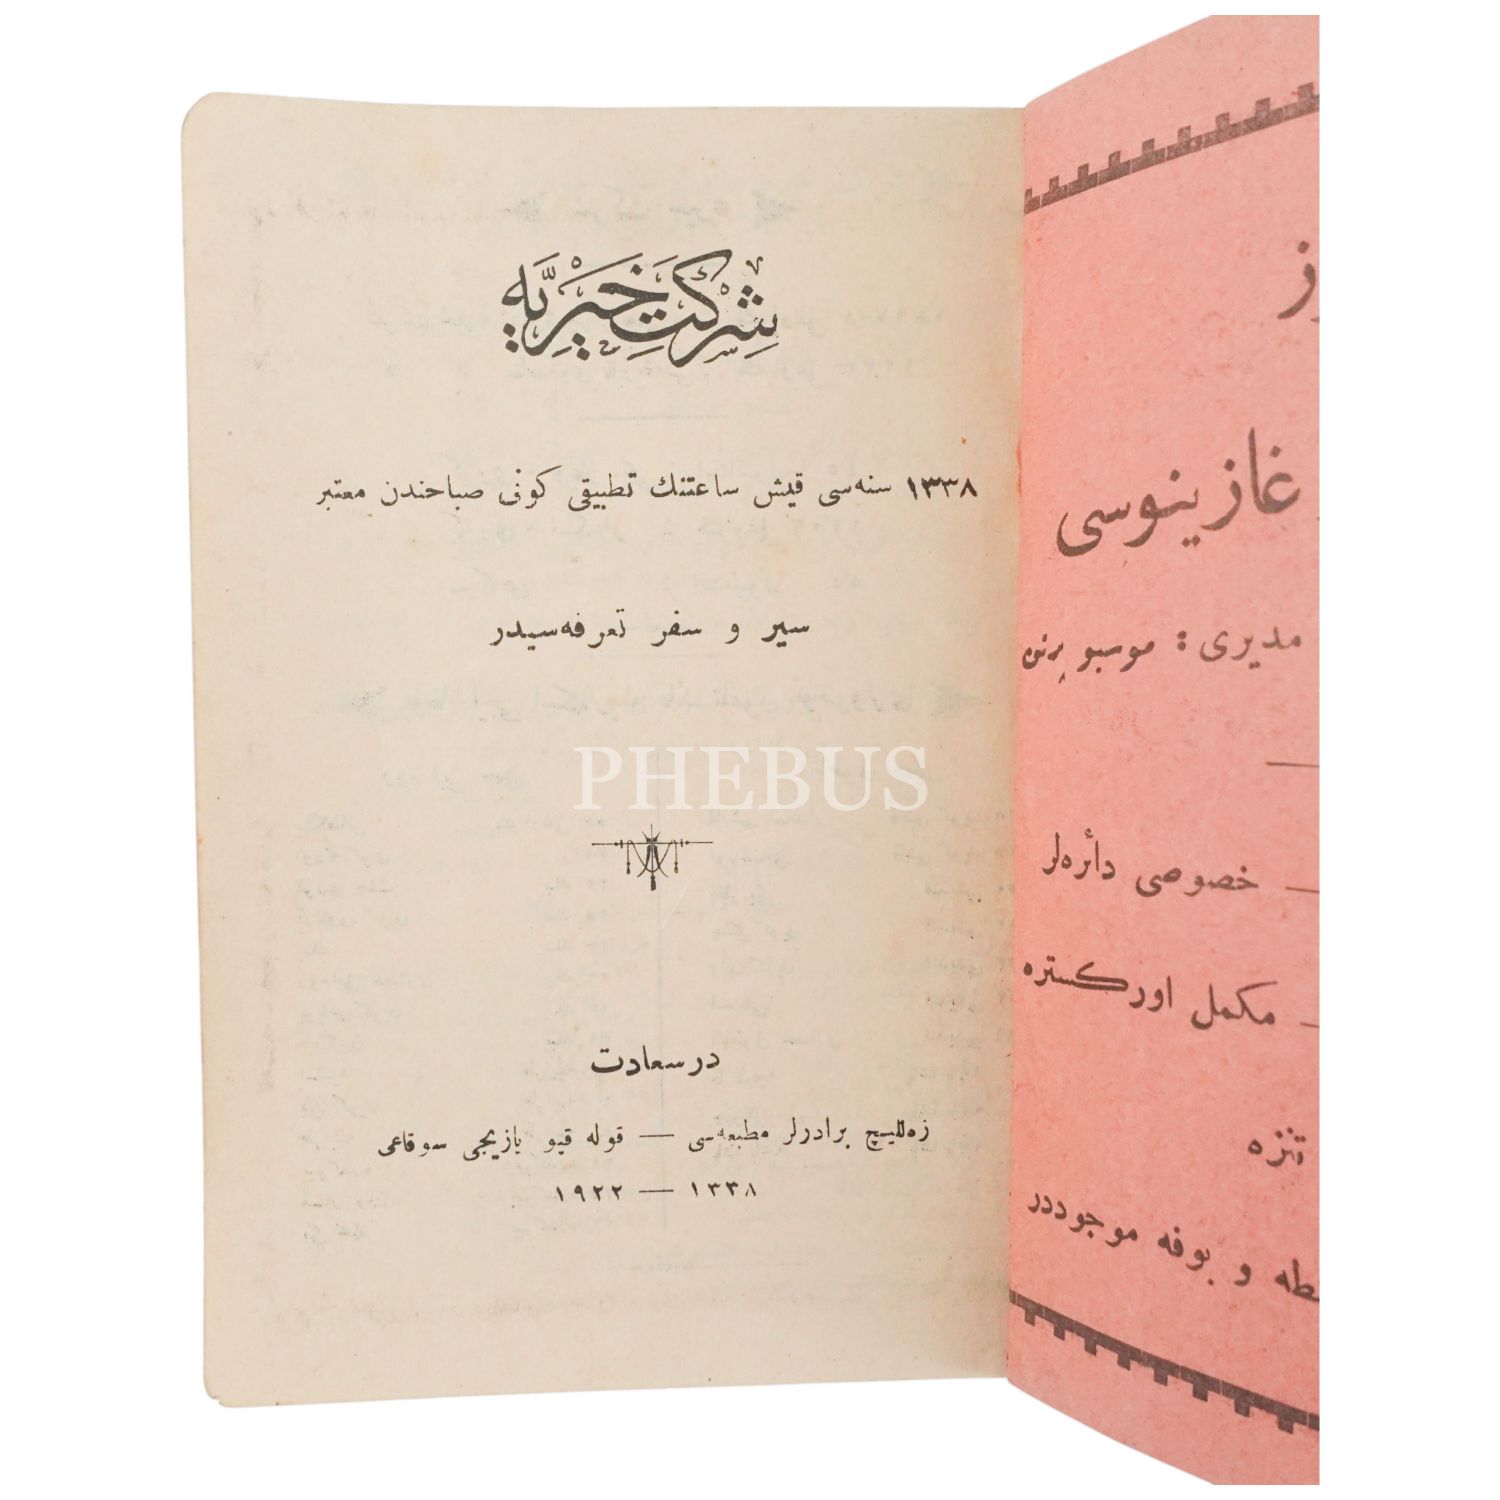 شركت خيريه
١٣٣٨ سنه‌سى قيش ساعتنك تطبيقى كونى صباحندن معتبر
سير و سفر تعرفه‌سيدر
PHEBUS
درسعادت
زه‌لليچ برادرلر مطبعه‌سى — قوله قپو يازيجى سوقاغى
١٣٣٨ — ١٩٢٢
غازينوسى
مديرى : موسيو
— خصوصى دائره‌لر
— مكمل اوركستره
تنزه
و بوفه موجوددر